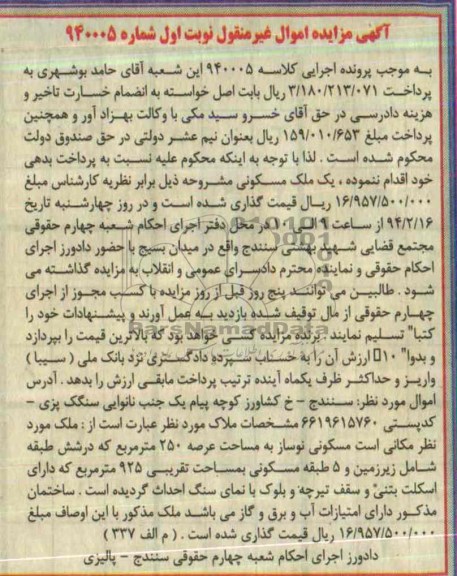 آگهی مزایده اموال غیرمنقول نوبت اول شماره ۹۴۰۰۰۵
به موجب پرونده اجرایی کلاسه ۹۴۰۰۰۵ این شعبه آقای حامد بوشهری به
پرداخت ۳/۱۸۰/۲۱۳/۰۷۱ ریال بابت اصل خواسته به انضمام خسارت تاخیر و
هزینه دادرسی در حق آقای خسرو سید مکی با وکالت بهزاد آور و همچنین
پرداخت مبلغ ۱۵۹/۰۱۰/۶۵۳ ریال بعنوان نیم عشر دولتی در حق صندوق دولت
محکوم شده است . لذا با توجه به اینکه محکوم علیه نسبت به پرداخت بدهی
خود اقدام ننموده ، یک ملک مسکونی مشروحه ذیل برابر نظریه کارشناس مبلغ
۱۶/۹۵۷/۵۰۰/۰۰۰ ریال قیمت گذاری شده است و در روز چهارشنبه تاریخ
۹۴/۲/۱۶ از ساعت ۹ الی ۱۰ در محل دفتر اجرای احکام شعبه چهارم حقوقی
مجتمع قضایی شهید بهشتی سنندج واقع در میدان بسیج با حضور دادورز اجرای
احکام حقوقی و نماینده محترم دادسرای عمومی و انقلاب به مزایده گذاشته می
شود . طالبین می توانند پنج روز قبل از روز مزایده با کسب مجوز از اجرای
چهارم حقوقی از مال توقیف شده بازدید به عمل آورند و پیشنهادات خود را
کتبا" تسلیم نمایند . برنده مزایده کسی خواهد بود که بالاترین قیمت را بپردازد
و بدوا" ۱۰ ارزش آن را به حساب سپرده دادگستری نزد بانک ملی ( سیبا )
واریز و حداکثر ظرف یکماه آینده ترتیب پرداخت مابقی ارزش را بدهد . آدرس
اموال مورد نظر: سنندج – خ کشاورز کوچه پیام یک جنب نانوایی سنگک پزی –
کدپستی ۶۶۱۹۶۱۵۷۶۰ مشخصات ملاک مورد نظر عبارت است از : ملک مورد
نظر مکانی است مسکونی نوساز به مساحت عرصه ۲۵۰ مترمربع که درشش طبقه
شامل زیرزمین و ۵ طبقه مسکونی بمساحت تقریبی ۹۲۵ مترمربع که دارای
اسکلت بتنی و سقف تیرچه و بلوک با نمای سنگ احداث گردیده است . ساختمان
مذکور دارای امتیازات آب و برق و گاز می باشد ملک مذکور با این اوصاف مبلغ
۱۶/۹۵۷/۵۰۰/۰۰۰ ریال قیمت گذاری شده است . ( م الف ۳۳۷ )
دادورز اجرای احکام شعبه چهارم حقوقی سنندج – پالیزی
ParsNamadData